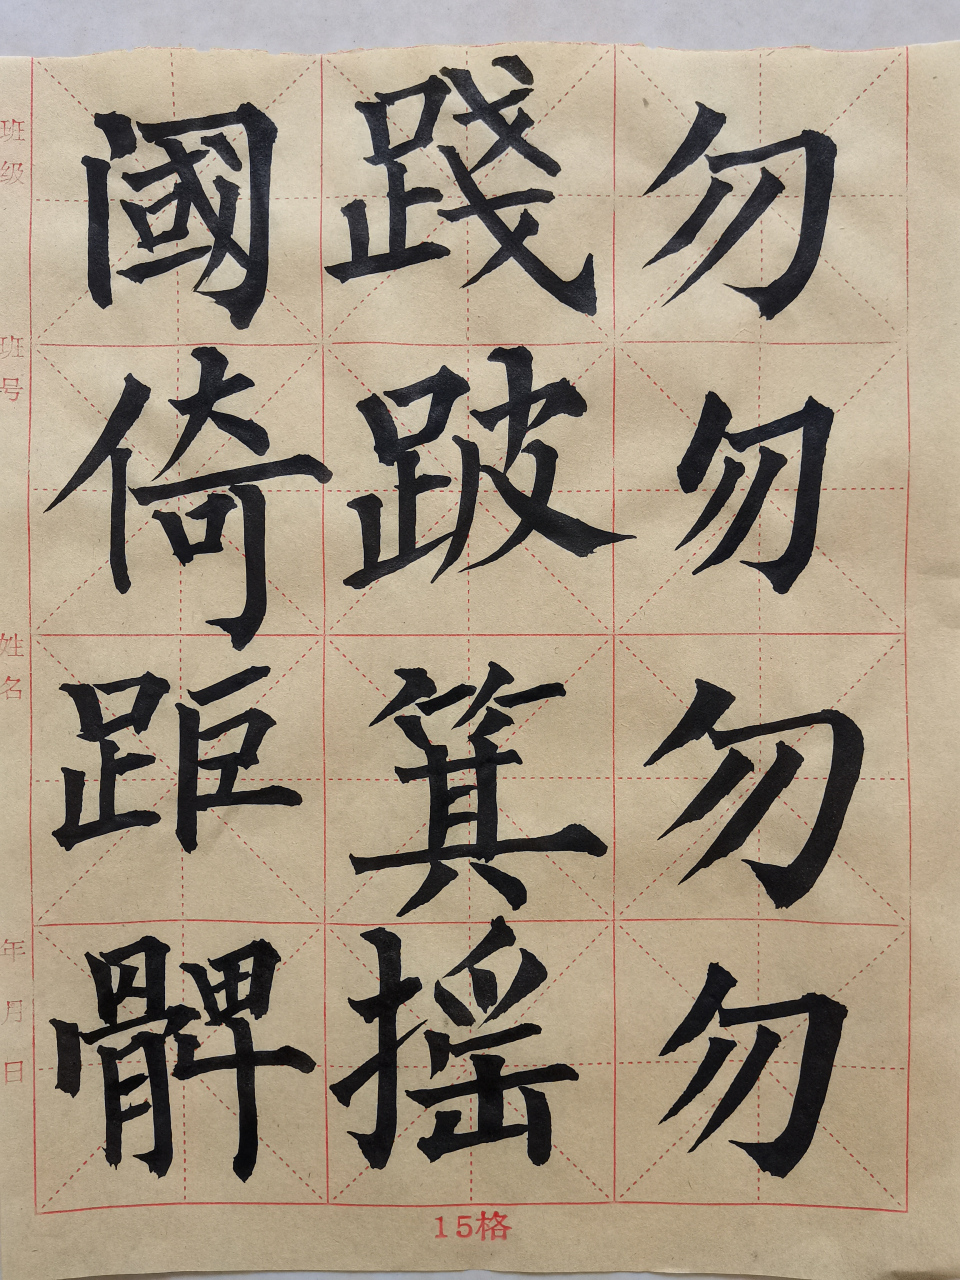 勿踐阈
勿跛倚
勿箕距
勿摇髀
班级
班号
姓名
年月日
15格